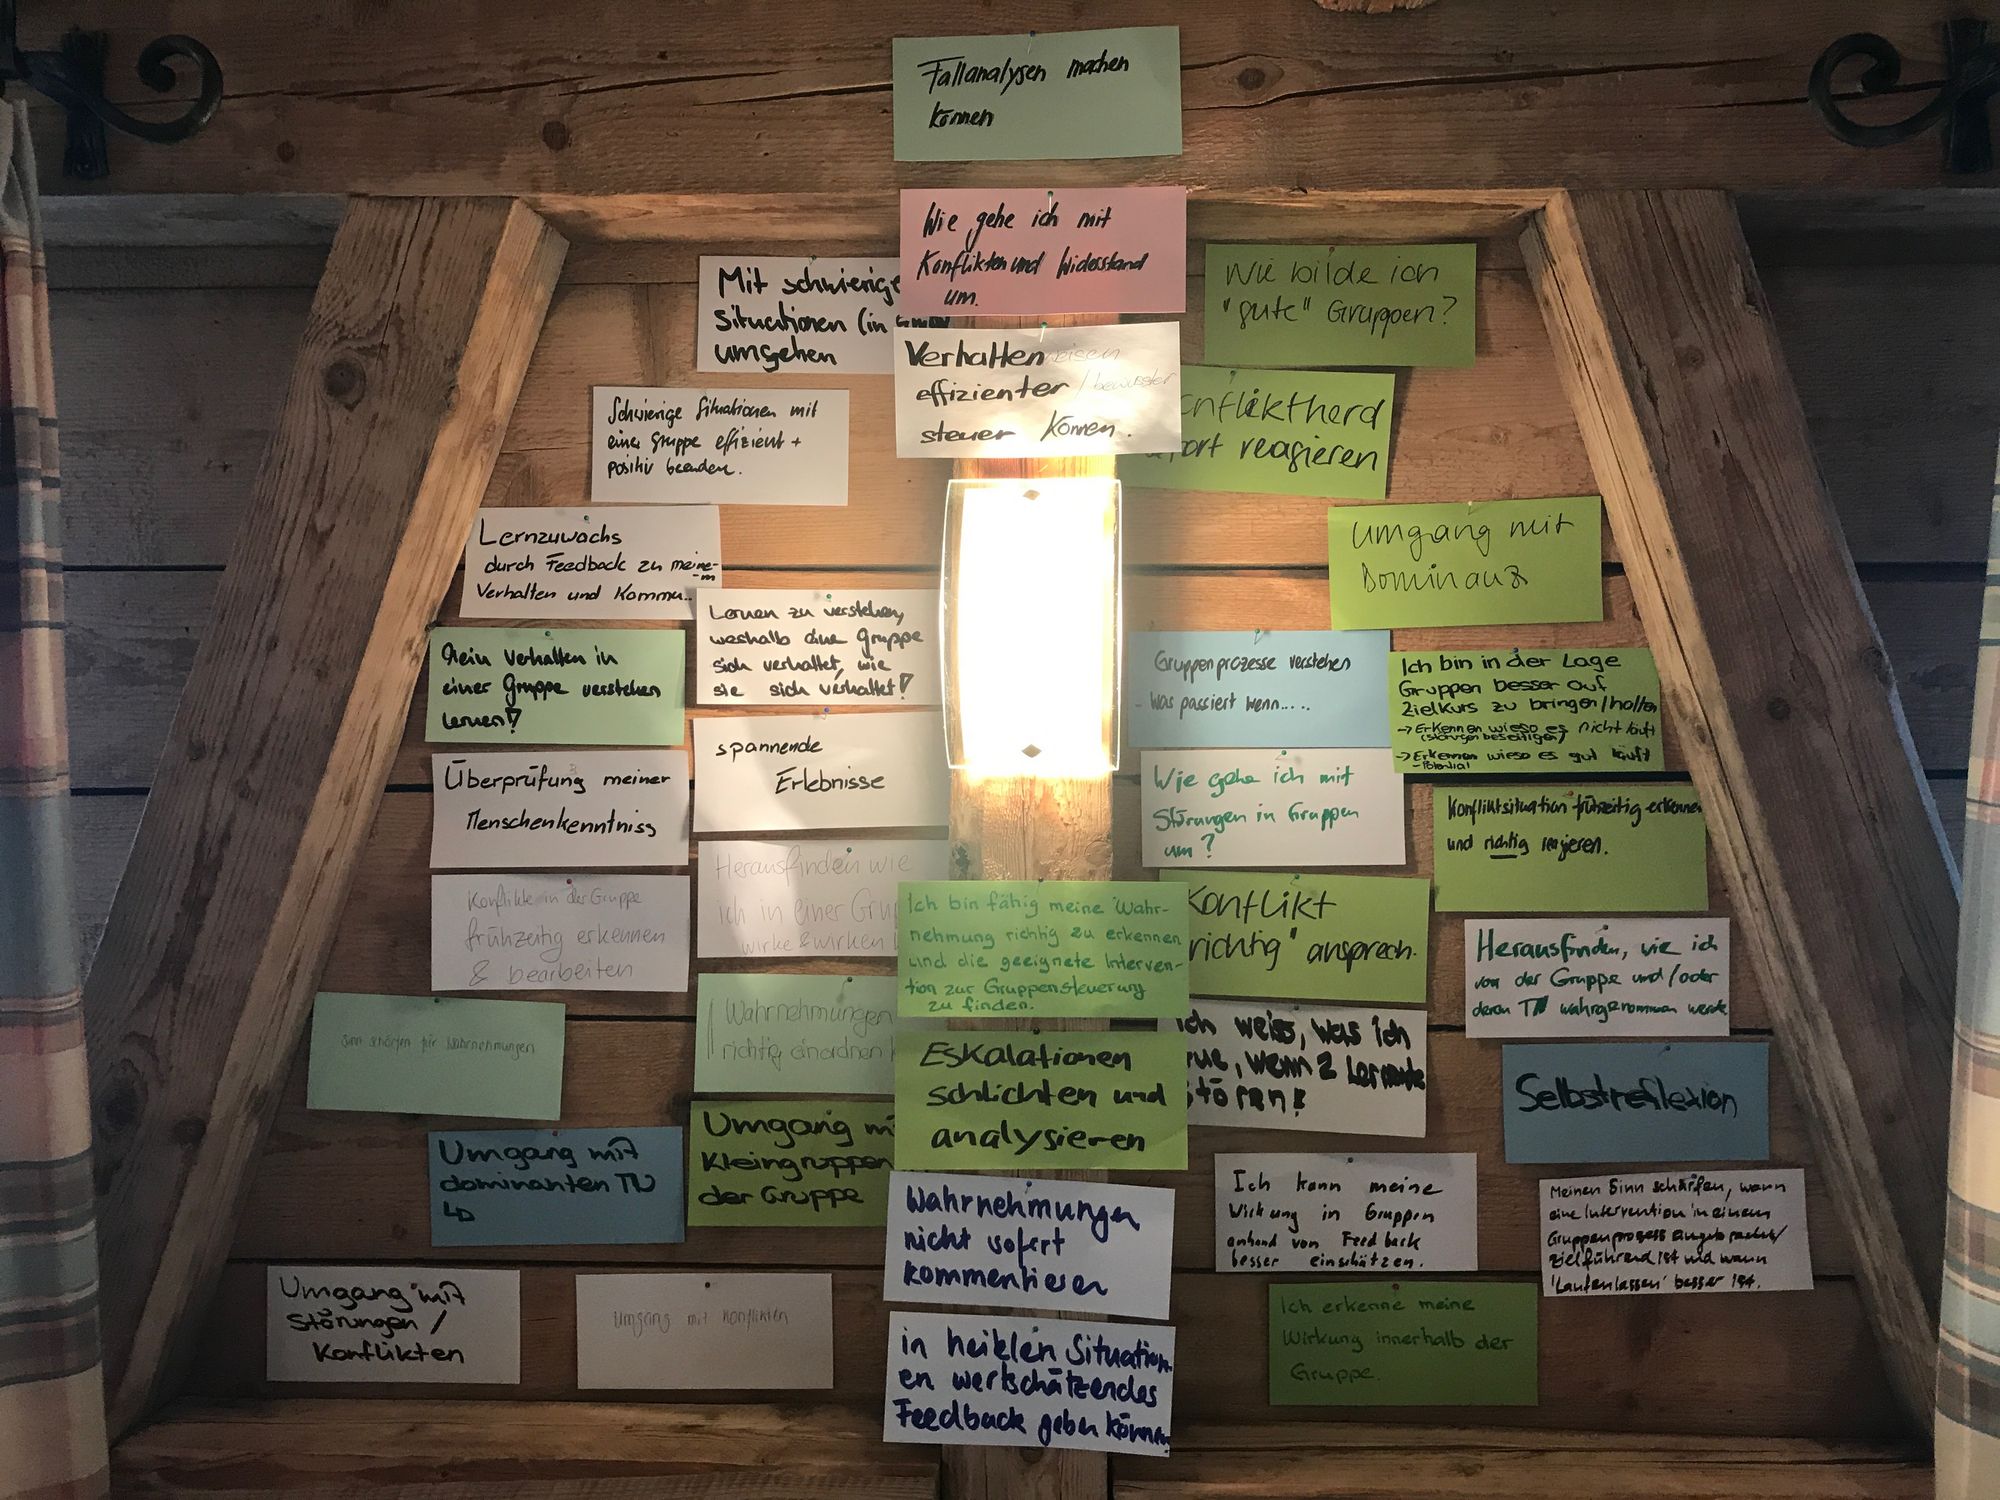 Fallanalysen machen
können
Wie gehe ich mit
Konflikten und Widerstand
um.
Mit schwierige
situationen (in
umgehen
Wie bilde ich
"gute" Gruppen?
Verhaltenweisen
effizienter / bewusster
steuer können.
nfliktherd
ort reagieren
Schwierige Situationen mit
einer Gruppe effizient +
positiv beenden.
Lernzuwachs
durch Feedback zu meine-
m
Verhalten und Kommu..
Umgang mit
Dominanz
Lernen zu verstehen,
weshalb eine Gruppe
sich verhaltet, wie
sie sich verhaltet!
Mein Verhalten in
einer Gruppe verstehen
lernen!
Gruppenprozesse verstehen
- Was passiert wenn.....
Ich bin in der Lage
Gruppen besser auf
Zielkurs zu bringen/halten
→ Erkennen wieso es nicht läuft
(störungen beseitigen)
→ Erkennen wieso es gut läuft
- Potential
spannende
Erlebnisse
Überprüfung meiner
Menschenkenntniss
Wie gehe ich mit
Störungen in Gruppen
um?
Konfliktsituation frühzeitig erkennen
und richtig reagieren.
Herausfinden wie
ich in einer Gru
wirke & wirken
Konflikte in der Gruppe
frühzeitig erkennen
& bearbeiten
Ich bin fähig meine Wahr-
nehmung richtig zu erkennen
und die geeignete Interven-
tion zur Gruppensteuerung
zu finden.
Konflikt
richtig" ansprech.
Herausfinden, wie ich
von der Gruppe und/oder
deren TN wahrgenommen werde
Wahrnehmungen
richtig einordnen
Sinn schärfen für Wahrnehmungen
Eskalationen
schlichten und
analysieren
ich weiss, was ich
tue, wenn 2 Lernende
stören!
Selbstreflexion
Umgang mi
Kleingruppen
der Gruppe
Umgang mit
dominanten TN
Wahrnehmungen
nicht sofort
kommentieren
Ich kann meine
Wirkung in Gruppen
anhand von Feedback
besser einschätzen.
Meinen Sinn schärfen, wann
eine Intervention in einem
Gruppenprozess angebracht/
zielführend ist und wann
'Laufenlassen' besser ist.
Umgang mit
Störungen /
Konflikten
Umgang mit Konflikten
Ich erkenne meine
Wirkung innerhalb der
Gruppe.
in heiklen Situation
en wertschätzendes
Feedback geben können